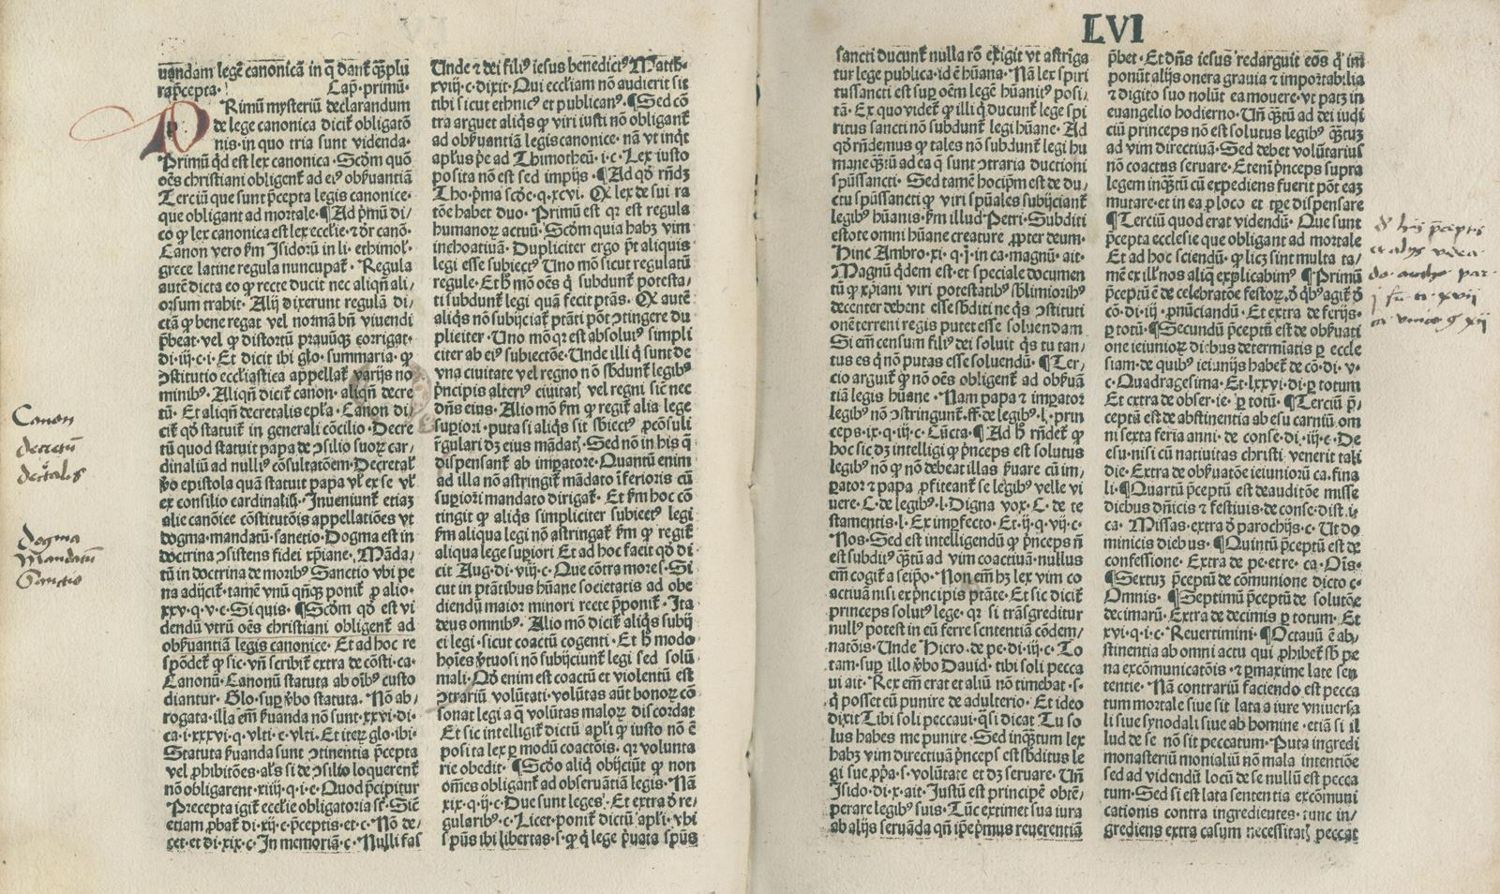 LVI
uandam legē canonicā in q̄ dant᷑ q̄ꝫplu
ra p̄cepta. Cap. primū.
PRimū mysteriū declarandum
de lege canonica dicit᷑ obligatō
nis. in quo tria sunt videnda.
Primū qd est lex canonica. Scd̄m quō
oēs christiani obligent᷑ ad eiꝰ obẜuantiā
Terciū que sunt p̄cepta legis canonice.
que obligant ad mortale. ¶Ad p̄mū di/
co ꝙ lex canonica est lex eccl̄ie. ⁊ dr̄ canō.
Canon vero ẜm Isidorū in li. ethimol.
grece latine regula nuncupat᷑. Regula
autē dicta eo ꝙ recte ducit nec aliqn̄ ali/
orsum trahit. Alij dixerunt regulā di/
ctā ꝙ bene regat vel normā bn̄ viuendi
p̄beat. vel ꝙ distortū prauūqꝫ corrigat.
di. iij. c. i. Et dicit ibi glo. summaria. ꝙ
ꝯstitutio eccl̄iastica appellat᷑ varijs no
minibꝰ. Aliqn̄ dicit᷑ canon. aliqn̄ decre
tū. Et aliqn̄ decretalis epl̄a. Canon di/
cit᷑ qd̄ statuit᷑ in generali cōcilio. Decre
tū quod statuit papa de ꝯsilio suoꝝ car/
dinaliū ad nulliꝰ cōsultatōem. Decretal᷑
ꝟo epistola quā statuit papa vl᷑ ex se vl᷑
ex consilio cardinaliū. Inueniunt᷑ etiaꝫ
alie canōice cōstitutōis appellatiōes vt
dogma. mandatū. sanctio. Dogma est in
doctrina ꝯsistens fidei xp̄iane. Māda/
tū in doctrina de moribꝰ Sanctio vbi pe
na adijcit᷑. tamē vnū qn̄qꝫ ponit᷑ ꝓ alio.
xxv. q. v. c. Si quis. ¶Scd̄m qd̄ est vi
dendū vtrū oēs christiani obligent᷑ ad
obẜuantiā legis canonice. Et ad hoc re
spōdet᷑ ꝙ sic. vn̄ scribit᷑ extra de cōsti. ca.
Canonū. Canonū statuta ab oībꝰ custo
diantur. Glo. suꝑ ꝟbo statuta. Nō ab/
rogata. illa em̄ ẜuanda nō sunt. xxvi. di.
ca. i. xxxvi. q. vlti. c. vlti. Et iteꝝ glo. ibi.
Statuta ẜuanda sunt ꝯtinentia p̄cepta
vel ꝓhibitōes. al̄s si de ꝯsilio loquerent᷑
nō obligarent. xiiij. q. i. c. Quod p̄cipitur
Precepta igit᷑ eccl̄ie obligatoria st̄. Sic
etiam ꝓbat᷑ di. xij. c. p̄ceptis. et. c. Nō de/
cet. et di. xix. c. In memoriā. c. Nulli fas
Unde ⁊ dei filiꝰ iesus benedictꝰ Matth.
xviij. c. dixit. Qui eccl̄iam nō audierit sit
tibi sicut ethnicꝰ et publicanꝰ. ¶Sed cō
tra arguet aliq̄s ꝙ viri iusti nō obligant᷑
ad obẜuantiā legis canonice. nā vt inq̄t
apl̄us p̄e ad Thimotheū. i. c. Lex iusto
posita nō est sed impijs. ¶Ad qd̄ rn̄dꝫ
Tho. p̄ma scd̄e. q. xcvi. Ꝙ lex de sui ra
tōe habet duo. Primū est qꝛ est regula
humanoꝝ actuū. Scd̄m quia habꝫ vim
inchoatiuā. Dupliciter ergo pt̄ aliquis
legi esse subiectꝰ Uno mō sicut regulatū
regule. Et hͦ mō oēs q̄ subdunt᷑ potesta/
ti subdunt᷑ legi quā fecit ptās. Ꝙ autē
aliq̄s nō subijciat᷑ ptāti pōt ꝯtingere du
pliciter. Uno mō qꝛ est absolutꝰ simpli
citer ab eiꝰ subiectōe. Unde illi q̄ sunt de
vna ciuitate vel regno nō sb̄dunt᷑ legibꝰ
p̄ncipis alteriꝰ ciuitatꝭ vel regni sic̄ nec
dn̄s eius. Alio mō ẜm ꝙ regit᷑ alia lege
suꝑiori. puta si aliq̄s sit sb̄iectꝰ ꝓcōsuli
r̄gulari dꝫ eius mādatꝭ. Sed nō in his q̄
dispensant᷑ ab imꝑatore. Quantū enim
ad illa nō astringit᷑ mādato īferioris cū
suꝑiori mandato dirigat᷑. Et ẜm hoc cō
tingit ꝙ aliq̄s simpliciter subiectꝰ legi
ẜm aliqua legi nō astringat᷑ ẜm ꝙ regit᷑
aliqua lege suꝑiori Et ad hoc facit qd̄ di
cit Aug. di. viij. c. Que cōtra mores. Si
cut in ptātibus hūane societatis ad obe
diendū maior minori recte p̄ponit᷑. Ita
deus omnibꝰ. Alio mō dicit᷑ aliq̄s subij
ci legi. sicut coactū cogenti. Et hͦ modo
hoīes ꝟtuosi nō subijciunt᷑ legi sed solū
mali. Qd̄ enim est coactū et violentū est
ꝯtrariū volūtati. volūtas aūt bonoꝝ cō
sonat legi a q̄ volūtas maloꝝ discordat
Et sic intelligit᷑ dictū apl̄i ꝙ iusto nō ē
posita lex ꝑ modū coactōis. qꝛ volunta
rie obedit. ¶Scd̄o aliq̄ obijciūt ꝙ non
om̄es obligant᷑ ad obseruantiā legis. Nā
xix. q. ij. c. Due sunt leges. Et extra d̄ re/
gularibꝰ. c. Licet. ponit᷑ dictū apl̄i. vbi
sp̄us ibi libertas. s. ꝙ q̄ lege p̄uata sp̄us
sancti ducunt᷑ nulla rō exigit vt astrīga
tur lege publica. id ē hūana. Nā lex spiri
tussancti est suꝑ oēm legē hūanitꝰ posi/
tā. Ex quo videt᷑ ꝙ illi q̄ ducunt᷑ lege spi
ritus sancti nō subdunt᷑ legi hūane. Ad
qd̄ rn̄demus ꝙ tales nō subdunt᷑ legi hu
mane q̄ꝫtū ad ea q̄ sunt ꝯtraria ductioni
sp̄ussancti. Sed tamē hocip̄m est de du/
ctu sp̄ussancti ꝙ viri sp̄uales subijciant᷑
legibꝰ hūanis. ẜm illud Petri. Subditi
estote omni hūane creature ꝓpter deum.
Hinc Ambro. xi. q. j. in ca. magnū. ait.
Magnū q̄dem est. et speciale documen
tū ꝙ xp̄iani viri potestatibꝰ sb̄limioribꝰ
decenter debent esse sb̄diti ne q̄s ꝯstituti
onē terreni regis putet esse soluendam
Si em̄ censum filiꝰ dei soluit q̄s tu tan/
tus es q̄ nō putas esse soluendū. ¶Ter/
cio arguit᷑ ꝙ nō oēs obligent᷑ ad obẜuā
tiā legis hūane. Nam papa ⁊ imꝑator
legibꝰ nō ꝯstringunt᷑. ff. de legibꝰ. l. prin
ceps. ix. q. iij. c. Cūcta. ¶Ad hͦ rn̄det᷑ ꝙ
hoc sic dꝫ intelligi ꝙ p̄nceps est solutus
legibꝰ nō ꝙ nō debeat illas ẜuare cū im/
ꝑator ⁊ papa ꝓfiteant᷑ se legibꝰ velle vi
uere. C. de legibꝰ. l. Digna vox. C. de te
stamentis. l. Ex imꝑfecto. Et. ij. q. vij. c.
Nos. Sed est intelligendū ꝙ p̄nceps n̄
est subditꝰ q̄ꝫtū ad vim coactiuā. nullus
em̄ cogit᷑ a seip̄o. Non em̄ hꝫ lex vim co
actiuā nisi ex p̄ncipis ptāte. Et sic dicit᷑
princeps solutꝰ lege. qꝛ si trāsgreditur
nullꝰ potest in eū ferre sententiā cōdem/
natōis. Unde Hiero. de pe. di. iij. c. To
tam. suꝑ illo ꝟbo Dauid. tibi soli pecca
ui ait. Rex em̄ erat et aliū nō timebat. s.
q̄ posset eū punire de adulterio. Et ideo
dixit Tibi soli peccaui. q̄si dicat Tu so
lus habes me punire. Sed inq̄ꝫtum lex
habꝫ vim directiuā p̄nceps est sb̄ditus le
gi sue ꝓp̄a. s. volūtate et dꝫ seruare. Un̄
Isido. di. x. ait. Justū est principē obtē/
perare legibꝰ suis. Tūc extimet sua iura
ab alijs seruāda qn̄ ip̄e p̄mus reuerentiā
p̄bet. Et dn̄s iesus redarguit eos q̄ im
ponūt alijs onera grauia ⁊ importabilia
⁊ digito suo nolūt ea mouere. vt patꝫ in
euangelio hodierno. Un̄ q̄ꝫtū ad dei iudi
ciū princeps nō est solutus legibꝰ q̄ꝫtuꝫ
ad vim directiuā. Sed debet volūtarius
nō coactus seruare. Eteni p̄nceps supra
legem inq̄ꝫtū cū expediens fuerit pōt eaꝫ
mutare. et in ea ꝓ loco et tp̄e dispensare
¶Terciū quod erat videndū. Que sunt
p̄cepta ecclesie que obligant ad mortale
Et ad hoc sciendū. ꝙ licꝫ sint multa ta/
mē ex ill̄ nos aliq̄ explicabimꝰ ¶Primū
p̄ceptū ē de celebratōe festoꝝ. d̄ qͥbꝰ agit᷑ d̄
cō. di. iij. ꝓnūciandū. Et extra de ferijs.
ꝑ totū. ¶Secundū p̄ceptū est de obẜuati
one ieiunioꝝ diebus determīatis ꝑ eccle
siam. de quibꝰ ieiunijs habet᷑ de cō. di. v.
c. Quadragesima. Et. lxxvi. di. ꝑ totum
Et extra de obser. ie. ꝑ totū. ¶Terciū p̄/
ceptū est de abstinentia ab esu carniū om
ni sexta feria anni. de conse. di. iij. c. De
esu. nisi cū natiuitas christi venerit tali
die. Extra de obẜuatōe ieiunioꝝ ca. fina
li. ¶Quartū p̄ceptū est de auditōe misse
diebus dn̄icis ⁊ festiuis. de conse. dist. i.
ca. Missas. extra d̄ parochijs. c. Ut do
minicis diebus. ¶Quintū p̄ceptū est de
confessione. Extra de pe. et re. ca. Oīs.
¶Sextuꝫ p̄ceptū de cōmunione dicto c.
Omnis. ¶Septimū p̄ceptū de solutōe
decimaꝝ. Extra de decimis ꝑ totum. Et
xvi. q. i. c. Reuertimini. ¶Octauū ē ab/
stinentia ab omni actu qui ꝓhibet᷑ sb̄ pe
na excōmunicatōis. ⁊ ꝑmaxime late sen
tentie. Nā contrariū faciendo est pecca
tum mortale siue sit lata a iure vniuersa
li siue synodali siue ab homine. etiā si il
lud de se nō sit peccatum. Puta ingredi
monasteriū monialiū nō mala intentiōe
sed ad videndū locū de se nullū est pecca
tum. Sed si est lata sententia excōmuni
cationis contra ingredientes. tunc in/
grediens extra casum necessitatꝭ peccat
Canon
decretū
decretales
dogma
Mandatū
Sanctio